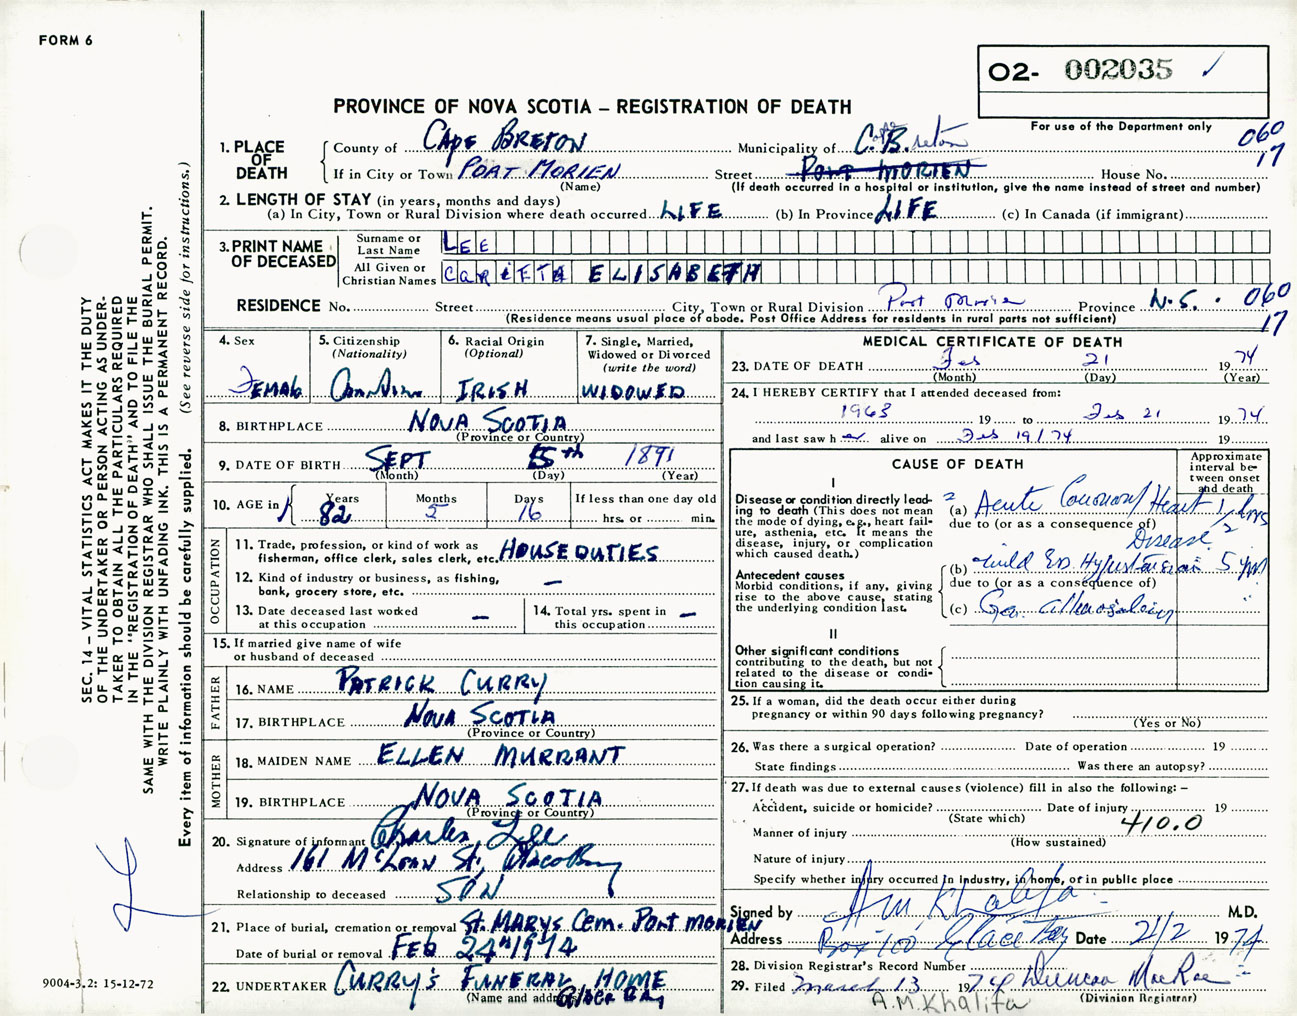 FORM 6
O2- 002035 ✓
For use of the Department only
PROVINCE OF NOVA SCOTIA – REGISTRATION OF DEATH
060
17
1. PLACE OF DEATH
County of CAPE BRETON Municipality of Cape Breton
If in City or Town PORT MORIEN Street PORT MORIEN House No.
(Name) (If death occurred in a hospital or institution, give the name instead of street and number)
2. LENGTH OF STAY (in years, months and days)
(a) In City, Town or Rural Division where death occurred LIFE (b) In Province LIFE (c) In Canada (if immigrant)
3. PRINT NAME OF DECEASED
Surname or Last Name LEE
All Given or Christian Names ELISABETH
RESIDENCE No. Street City, Town or Rural Division Port Morien Province N.S. 060
(Residence means usual place of abode. Post Office Address for residents in rural parts not sufficient) 17
4. Sex FEMALE
5. Citizenship (Nationality) Canadian
6. Racial Origin (Optional) IRISH
7. Single, Married, Widowed or Divorced (write the word) WIDOWED
8. BIRTHPLACE NOVA SCOTIA
(Province or Country)
9. DATE OF BIRTH SEPT 5th 1891
(Month) (Day) (Year)
10. AGE in Years 82 Months 5 Days 16 If less than one day old
hrs. or min.
OCCUPATION
11. Trade, profession, or kind of work as fisherman, office clerk, sales clerk, etc. HOUSE DUTIES
12. Kind of industry or business, as fishing, bank, grocery store, etc. –
13. Date deceased last worked at this occupation –
14. Total yrs. spent in this occupation –
15. If married give name of wife or husband of deceased
FATHER
16. NAME PATRICK CURRY
17. BIRTHPLACE NOVA SCOTIA
(Province or Country)
MOTHER
18. MAIDEN NAME ELLEN MURRANT
19. BIRTHPLACE NOVA SCOTIA
(Province or Country)
20. Signature of informant Charles Lee
Address 161 McLean St. Glace Bay
Relationship to deceased SON
21. Place of burial, cremation or removal St. MARYS Cem. PORT MORIEN
Date of burial or removal FEB 24th 1974
22. UNDERTAKER CURRY'S FUNERAL HOME
(Name and address) Glace Bay
MEDICAL CERTIFICATE OF DEATH
23. DATE OF DEATH Feb 21 1974
(Month) (Day) (Year)
24. I HEREBY CERTIFY that I attended deceased from:
1963 19 to Feb 21 1974
and last saw her alive on Feb 19/74 19
CAUSE OF DEATH
Approximate interval between onset and death
I
Disease or condition directly leading to death (This does not mean the mode of dying, e.g., heart failure, asthenia, etc. It means the disease, injury, or complication which caused death.)
(a) Acute Coronary Heart Disease
due to (or as a consequence of)
Antecedent causes
Morbid conditions, if any, giving rise to the above cause, stating the underlying condition last.
(b) Hypertension 5 yrs
due to (or as a consequence of)
(c) Gen.
II
Other significant conditions
contributing to the death, but not related to the disease or condition causing it.
25. If a woman, did the death occur either during pregnancy or within 90 days following pregnancy?
(Yes or No)
26. Was there a surgical operation? Date of operation 19
State findings Was there an autopsy?
27. If death was due to external causes (violence) fill in also the following: –
Accident, suicide or homicide? Date of injury 19
(State which) 410.0
Manner of injury
(How sustained)
Nature of injury
Specify whether injury occurred in industry, in home, or in public place
Signed by A.M. Khalifa M.D.
Address Box 100 Glace Bay Date 21/2 1974
28. Division Registrar's Record Number
29. Filed March 13 1974 Duncan MacRae
(Division Registrar)
A.M. Khalifa
SEC. 14 – VITAL STATISTICS ACT MAKES IT THE DUTY
OF THE UNDERTAKER OR PERSON ACTING AS UNDERTAKER TO OBTAIN ALL THE PARTICULARS REQUIRED
IN THE "REGISTRATION OF DEATH" AND TO FILE THE
SAME WITH THE DIVISION REGISTRAR WHO SHALL ISSUE THE BURIAL PERMIT.
WRITE PLAINLY WITH UNFADING INK. THIS IS A PERMANENT RECORD.
Every item of information should be carefully supplied. (See reverse side for instructions.)
9004-3.2: 15-12-72